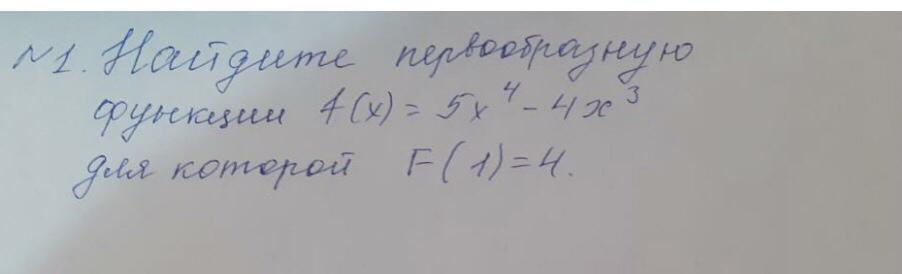 №1. Найдите первообразную
функции f(x) = 5x⁴ - 4x³
для которой F(1)=4.